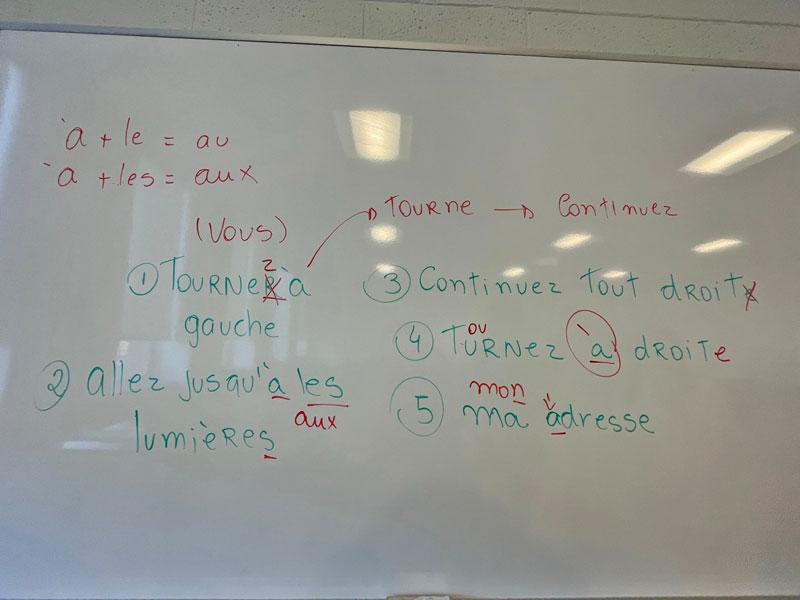 à + le = au
à + les = aux
(Vous)
Tourne → Continuez
① Tournez à
gauche
② allez jusqu'à les
aux
lumières
③ Continuez tout droit
④ Tournez à droite
ou
mon
⑤ ma adresse